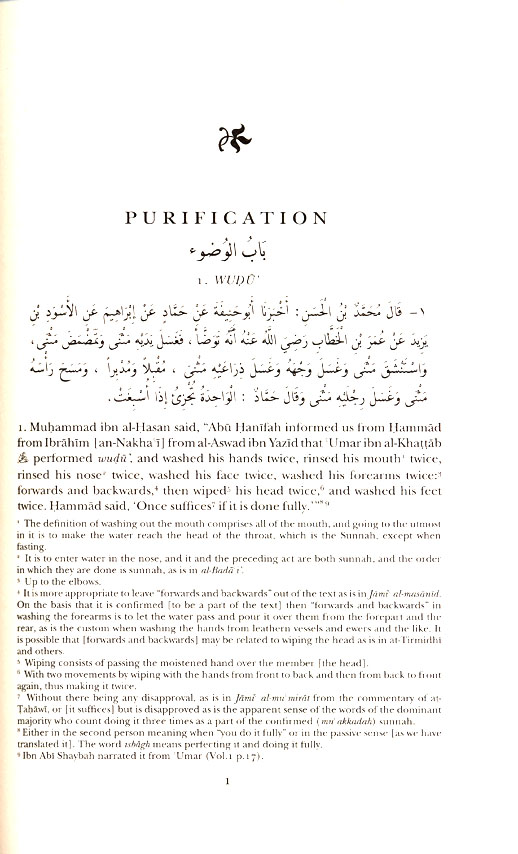 PURIFICATION
بَابُ الوُضُوء
1. WUḌŪ’
١- قَالَ مُحَمَّدُ بْنُ الْحَسَنِ: أَخْبَرَنَا أَبُوحَنِيفَةَ عَنْ حَمَّادٍ عَنْ إِبْرَاهِيمَ عَنِ الْأَسْوَدِ بْنِ
يَزِيدَ عَنْ عُمَرَ بْنِ الْخَطَّابِ رَضِيَ اللَّهُ عَنْهُ أَنَّهُ تَوَضَّأَ، فَغَسَلَ يَدَيْهِ مَثْنَى وَتَمَضْمَضَ مَثْنَى،
وَاسْتَنْشَقَ مَثْنَى وَغَسَلَ وَجْهَهُ وَغَسَلَ ذِرَاعَيْهِ مَثْنَى ، مُقْبِلًا وَمُدْبِراً ، وَمَسَحَ رَأْسَهُ
مَثْنَى وَغَسَلَ رِجْلَيْهِ مَثْنَى وَقَالَ حَمَّادٌ : الْوَاحِدَةُ تُجْزِئُ إِذَا أَسْبَغَتْ.
1. Muḥammad ibn al-Ḥasan said, “Abū Ḥanīfah informed us from Ḥammād
from Ibrāhīm [an-Nakha‘ī] from al-Aswad ibn Yazīd that ‘Umar ibn al-Khaṭṭāb
performed wuḍū’, and washed his hands twice, rinsed his mouth¹ twice,
rinsed his nose² twice, washed his face twice, washed his forearms twice:³
forwards and backwards,⁴ then wiped⁵ his head twice,⁶ and washed his feet
twice. Ḥammād said, ‘Once suffices⁷ if it is done fully.’”⁸ ⁹
¹ The definition of washing out the mouth comprises all of the mouth, and going to the utmost
in it is to make the water reach the head of the throat, which is the Sunnah, except when
fasting.
² It is to enter water in the nose, and it and the preceding act are both sunnah, and the order
in which they are done is sunnah, as is in al-Badā’i‘.
³ Up to the elbows.
⁴ It is more appropriate to leave “forwards and backwards” out of the text as is in Jāmi‘ al-masānīd.
On the basis that it is confirmed [to be a part of the text] then “forwards and backwards” in
washing the forearms is to let the water pass and pour it over them from the forepart and the
rear, as is the custom when washing the hands from leathern vessels and ewers and the like. It
is possible that [forwards and backwards] may be related to wiping the head as is in at-Tirmidhī
and others.
⁵ Wiping consists of passing the moistened hand over the member [the head].
⁶ With two movements by wiping with the hands from front to back and then from back to front
again, thus making it twice.
⁷ Without there being any disapproval, as is in Jāmi‘ al-muḍmirāt from the commentary of aṭ-
Ṭaḥāwī, or [it suffices] but is disapproved as is the apparent sense of the words of the dominant
majority who count doing it three times as a part of the confirmed (mu’akkadah) sunnah.
⁸ Either in the second person meaning when “you do it fully” or in the passive sense [as we have
translated it]. The word isbāgh means perfecting it and doing it fully.
⁹ Ibn Abī Shaybah narrated it from ‘Umar (Vol.1 p.17).
1